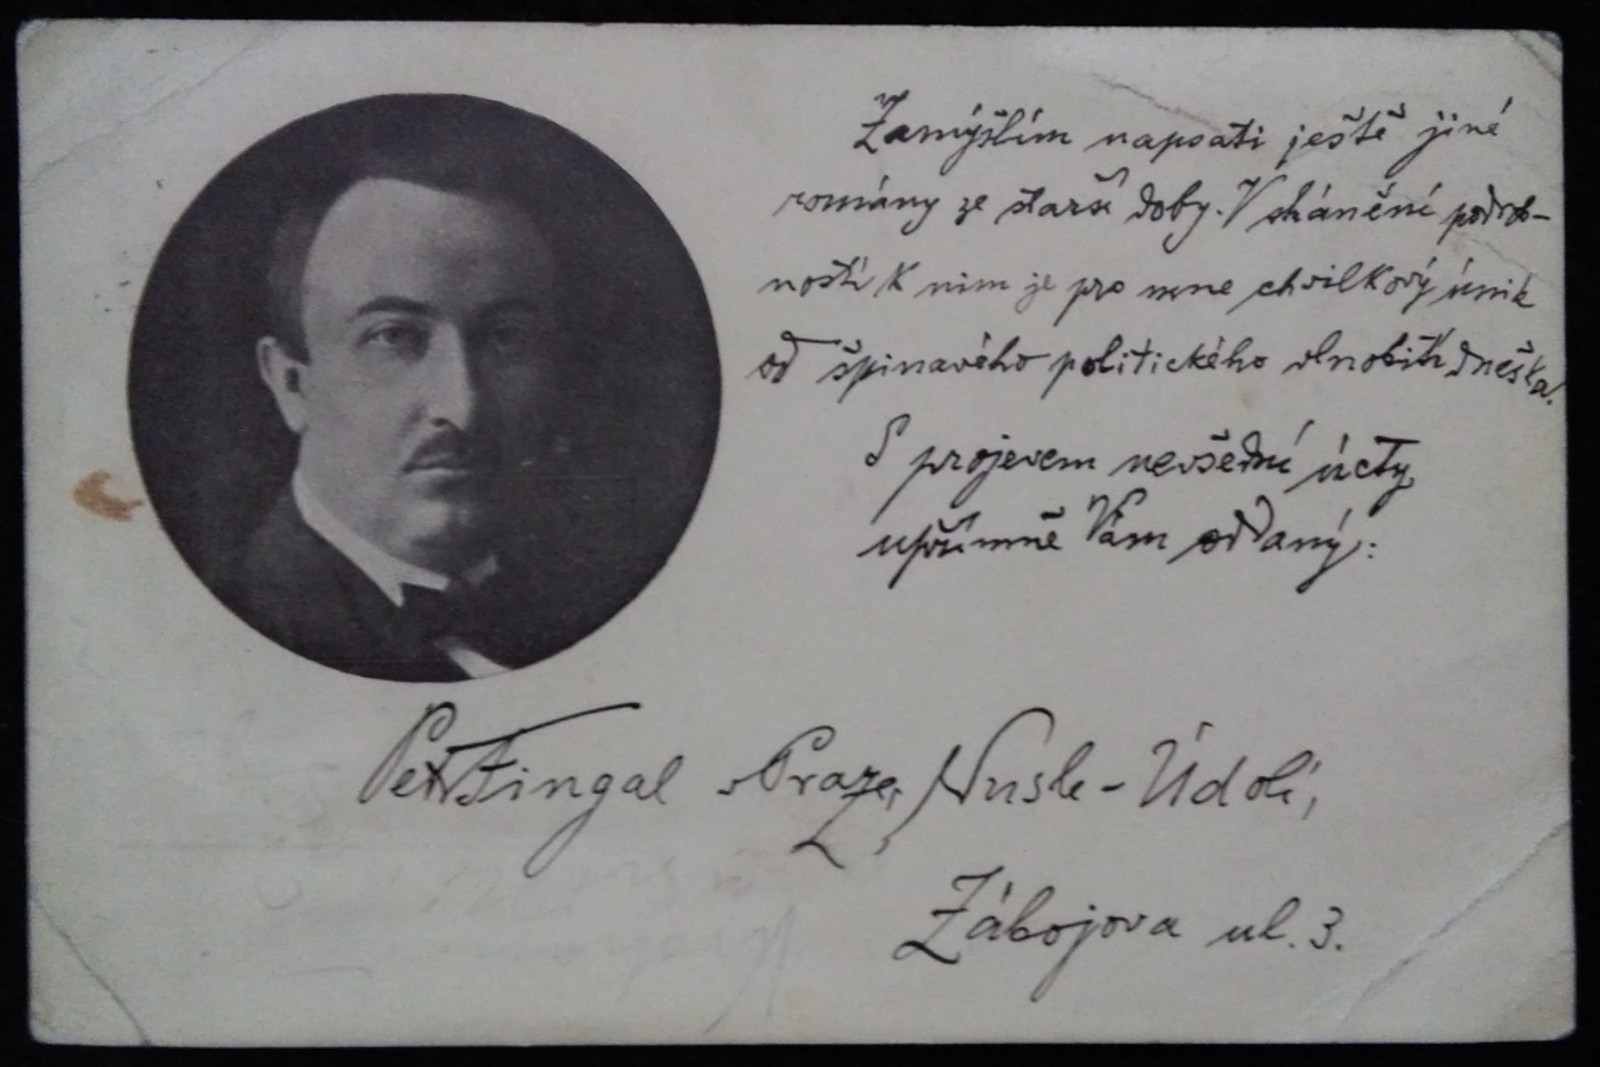 Zamýšlím napsati ještě jiné
romány ze starší doby. V shánění podrob-
ností k nim je pro mne chvilkový únik
od špinavého politického vlnobití dneška.
S projevem nevšední úcty
upřímně Vám oddaný:
Petr Fingal v Praze, Nusle-Údolí,
Zábojova ul. 3.